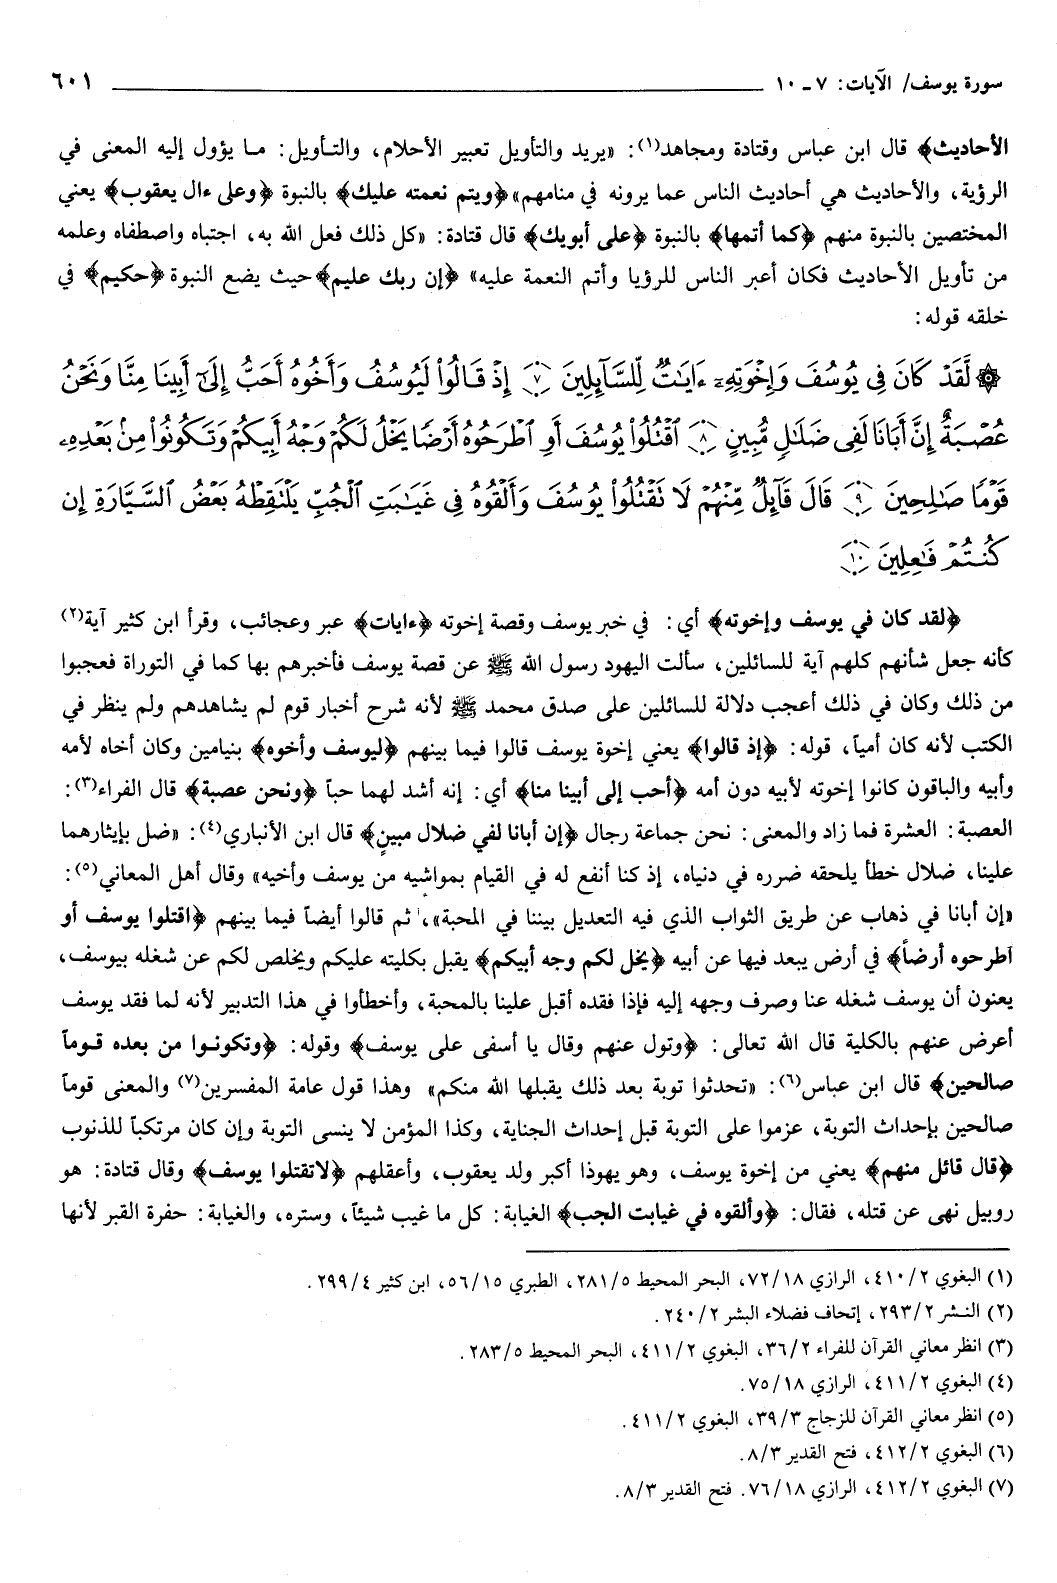 سورة يوسف/ الآيات: ٧ ـ ١٠ ٦٠١
الأحاديث﴾ قال ابن عباس وقتادة ومجاهد(١): «يريد والتأويل تعبير الأحلام، والتأويل: ما يؤول إليه المعنى في
الرؤية، والأحاديث هي أحاديث الناس عما يرونه في منامهم» ﴿ويتم نعمته عليك﴾ بالنبوة ﴿وعلى ءال يعقوب﴾ يعني
المختصين بالنبوة منهم ﴿كما أتمها﴾ بالنبوة ﴿على أبويك﴾ قال قتادة: «كل ذلك فعل الله به، اجتباه واصطفاه وعلمه
من تأويل الأحاديث فكان أعبر الناس للرؤيا وأتم النعمة عليه» ﴿إن ربك عليم﴾ حيث يضع النبوة ﴿حكيم﴾ في
خلقه قوله:
۞ لَّقَدْ كَانَ فِي يُوسُفَ وَإِخْوَتِهِۦٓ ءَايَٰتٌ لِّلسَّآئِلِينَ ۝٧ إِذْ قَالُوا۟ لَيُوسُفُ وَأَخُوهُ أَحَبُّ إِلَىٰٓ أَبِينَا مِنَّا وَنَحْنُ
عُصْبَةٌ إِنَّ أَبَانَا لَفِى ضَلَٰلٍ مُّبِينٍ ۝٨ ٱقْتُلُوا۟ يُوسُفَ أَوِ ٱطْرَحُوهُ أَرْضًا يَخْلُ لَكُمْ وَجْهُ أَبِيكُمْ وَتَكُونُوا۟ مِنۢ بَعْدِهِۦ
قَوْمًا صَٰلِحِينَ ۝٩ قَالَ قَآئِلٌ مِّنْهُمْ لَا نَقْتُلُوا۟ يُوسُفَ وَأَلْقُوهُ فِى غَيَٰبَتِ ٱلْجُبِّ يَلْتَقِطْهُ بَعْضُ ٱلسَّيَّارَةِ إِن
كُنتُمْ فَٰعِلِينَ ۝١٠
﴿لقد كان في يوسف وإخوته﴾ أي: في خبر يوسف وقصة إخوته ﴿ءايات﴾ عبر وعجائب، وقرأ ابن كثير آية(٢)
كأنه جعل شأنهم كلهم آية للسائلين، سألت اليهود رسول الله ﷺ عن قصة يوسف فأخبرهم بها كما في التوراة فعجبوا
من ذلك وكان في ذلك أعجب دلالة للسائلين على صدق محمد ﷺ لأنه شرح أخبار قوم لم يشاهدهم ولم ينظر في
الكتب لأنه كان أمياً، قوله: ﴿إذ قالوا﴾ يعني إخوة يوسف قالوا فيما بينهم ﴿ليوسف وأخوه﴾ بنيامين وكان أخاه لأمه
وأبيه والباقون كانوا إخوته لأبيه دون أمه ﴿أحب إلى أبينا منا﴾ أي: إنه أشد لهما حباً ﴿ونحن عصبة﴾ قال الفراء(٣):
العصبة: العشرة فما زاد والمعنى: نحن جماعة رجال ﴿إن أبانا لفي ضلال مبين﴾ قال ابن الأنباري(٤): «ضل بإيثارهما
علينا، ضلال خطأ يلحقه ضرره في دنياه، إذ كنا أنفع له في القيام بمواشيه من يوسف وأخيه» وقال أهل المعاني(٥):
«إن أبانا في ذهاب عن طريق الثواب الذي فيه التعديل بيننا في المحبة»، ثم قالوا أيضاً فيما بينهم ﴿اقتلوا يوسف أو
اطرحوه أرضاً﴾ في أرض يبعد فيها عن أبيه ﴿يخل لكم وجه أبيكم﴾ يقبل بكليته عليكم ويخلص لكم عن شغله بيوسف،
يعنون أن يوسف شغله عنا وصرف وجهه إليه فإذا فقده أقبل علينا بالمحبة، وأخطأوا في هذا التدبير لأنه لما فقد يوسف
أعرض عنهم بالكلية قال الله تعالى: ﴿وتول عنهم وقال يا أسفى على يوسف﴾ وقوله: ﴿وتكونوا من بعده قوماً
صالحين﴾ قال ابن عباس(٦): «تحدثوا توبة بعد ذلك يقبلها الله منكم» وهذا قول عامة المفسرين(٧) والمعنى قوماً
صالحين بإحداث التوبة، عزموا على التوبة قبل إحداث الجناية، وكذا المؤمن لا ينسى التوبة وإن كان مرتكباً للذنوب
﴿قال قائل منهم﴾ يعني من إخوة يوسف، وهو يهوذا أكبر ولد يعقوب، وأعقلهم ﴿لاتقتلوا يوسف﴾ وقال قتادة: هو
روبيل نهى عن قتله، فقال: ﴿وألقوه في غيابت الجب﴾ الغيابة: كل ما غيب شيئاً، وستره، والغيابة: حفرة القبر لأنها
(١) البغوي ٢/ ٤١٠، الرازي ١٨/ ٧٢، البحر المحيط ٥/ ٢٨١، الطبري ١٥/ ٥٦، ابن كثير ٤/ ٢٩٩.
(٢) النشر ٢/ ٢٩٣، إتحاف فضلاء البشر ٢/ ٢٤٠.
(٣) انظر معاني القرآن للفراء ٢/ ٣٦، البغوي ٢/ ٤١١، البحر المحيط ٥/ ٢٨٣.
(٤) البغوي ٢/ ٤١١، الرازي ١٨/ ٧٥.
(٥) انظر معاني القرآن للزجاج ٣/ ٣٩، البغوي ٢/ ٤١١.
(٦) البغوي ٢/ ٤١٢، فتح القدير ٣/ ٨.
(٧) البغوي ٢/ ٤١٢، الرازي ١٨/ ٧٦. فتح القدير ٣/ ٨.